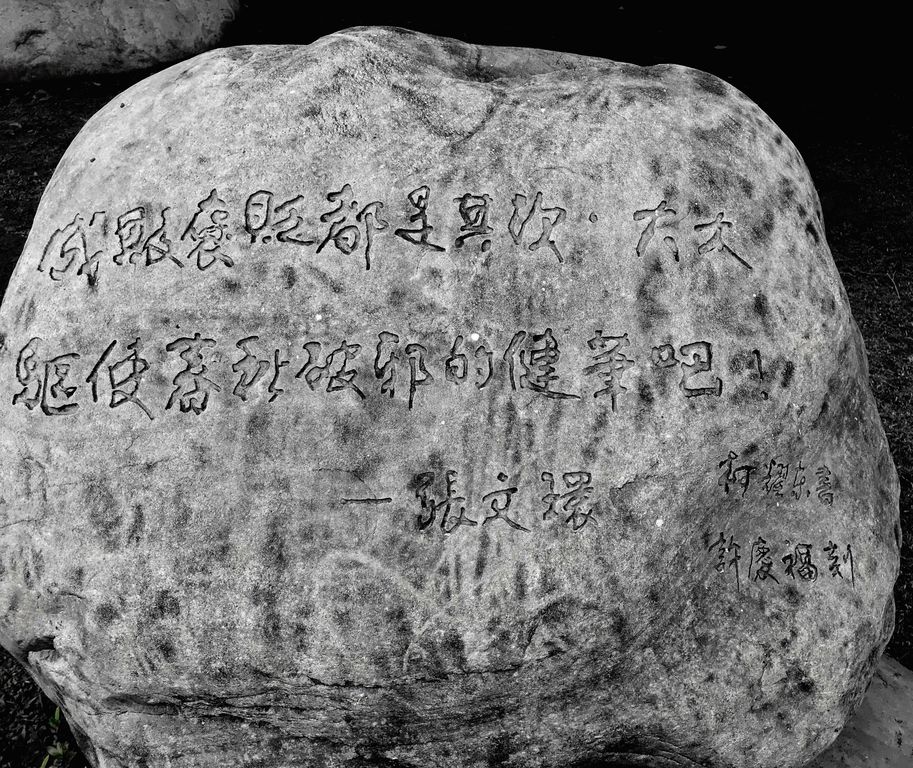 成敗褒貶都是其次．大大
驅使春秋破邪的健筆吧！
—張文環
柯耀東書
許慶福刻